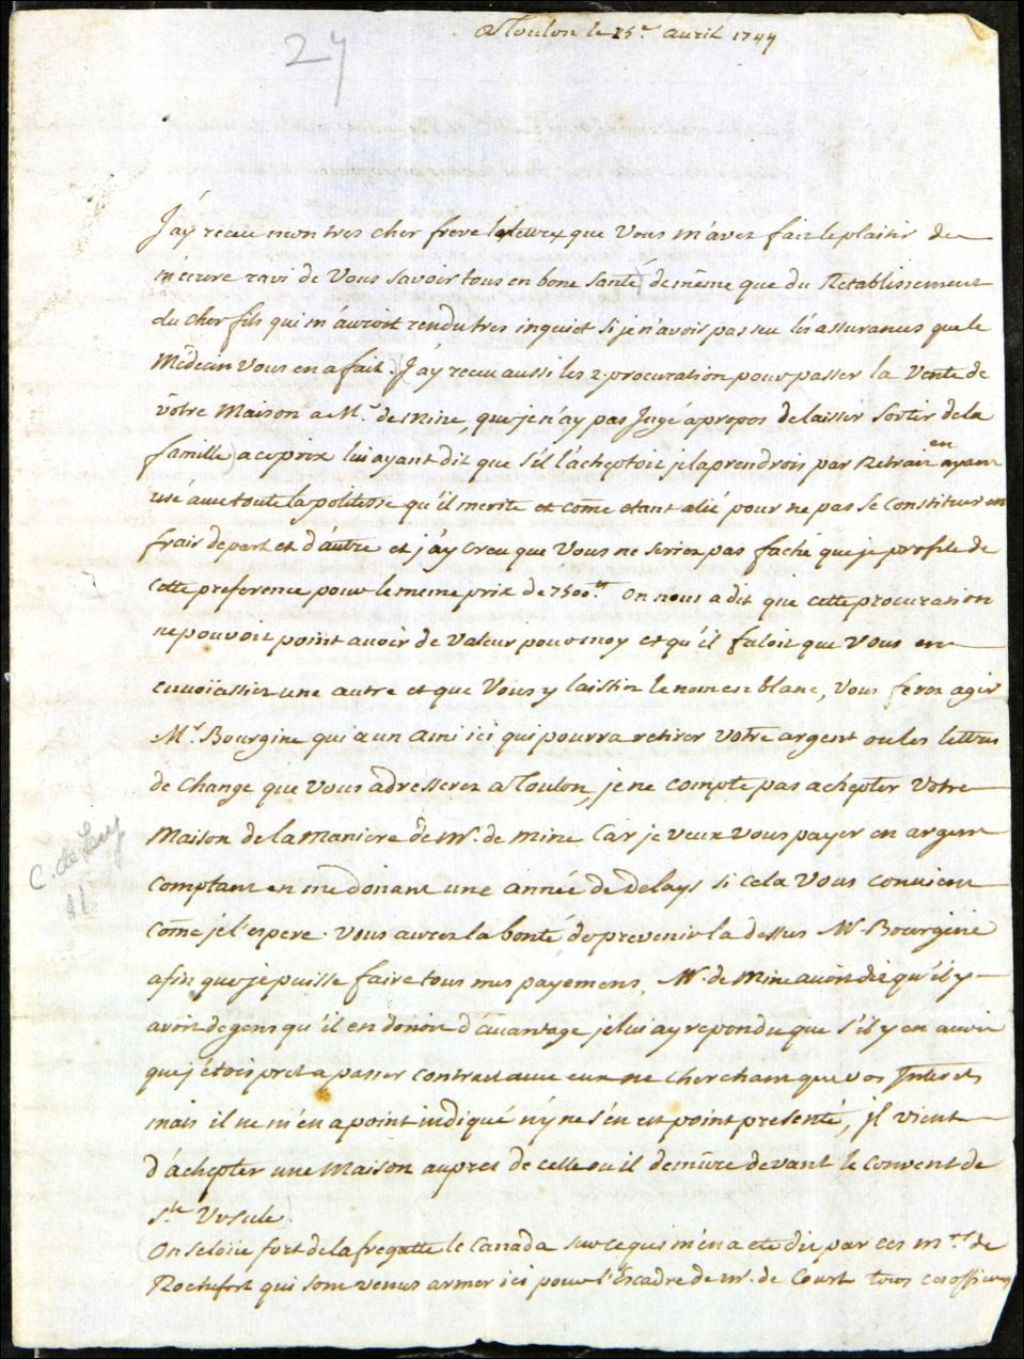 27
A Toulon le 25e avril 1744
J'ay receu mon tres cher frere la lettre que Vous m'avez fait le plaisir de
m'écrire ravi de Vous savoir tous en bone santé) de même que du Retablissement
du cher fils qui m'auroit rendu tres inquiet si je n'avois pas sceu les assurances que le
Médecin Vous en a fait. (J'ay receu aussi les 2. procuration pour passer la Vente de
vôtre Maison a Mr. de Mine, que je n'ay pas Jugé apropos de laisser Sortir de la
famille) a ce prix lui ayant dit que s'il l'acheptoit je la prendrois par Retrait en ayant
usé avec toute la politesse qu'il merite et come etant alié pour ne pas se constituer en
frais de part et d'autre et j'ay creu que Vous ne seriez pas faché que je profite de
cette preference pour le meme prix de 7500.tt on nous a dit que cette procuration
ne pouvoit point avoir de Valeur pour moy et qu'il faloit que Vous en
envoiassiez une autre et que Vous y laissiez le nom en blanc, Vous ferez agir
Mr. Bourgine qui a un ami ici qui pourra retirer votre argent ou les lettres
de Change que Vous adresserez a Toulon, je ne compte pas achepter Votre
Maison de la maniere de Mr. de Mine Car je veux vous payer en argent
comptant en me donant une année de delays si cela Vous convient
côme je l'espere. Vous aurez la bonté de prevenir la dessus Mr. Bourgine
afin que je puisse faire tous mes payemens. Mr. de Mine avoit dit qu'il y
avoit de gens qu'il en donoit d'avantage je lui ay repondu que s'il y en avoit
que j'étois pret a passer contract avec eux ne cherchant que vos Interets
mais il ne m'en a point indiqué n'y ne s'en est point presenté, jl vient
d'achepter une Maison aupres de celle ou il demûre devant le Convent de
Ste Ursule.
(On se loüe fort de la fregatte le Canada sur ce qui m'en a eté dit par ces mrs. de
Rochefort qui sont venus armer ici pour l'Escadre de mr. de Court tous ces officiers
C. de Lery